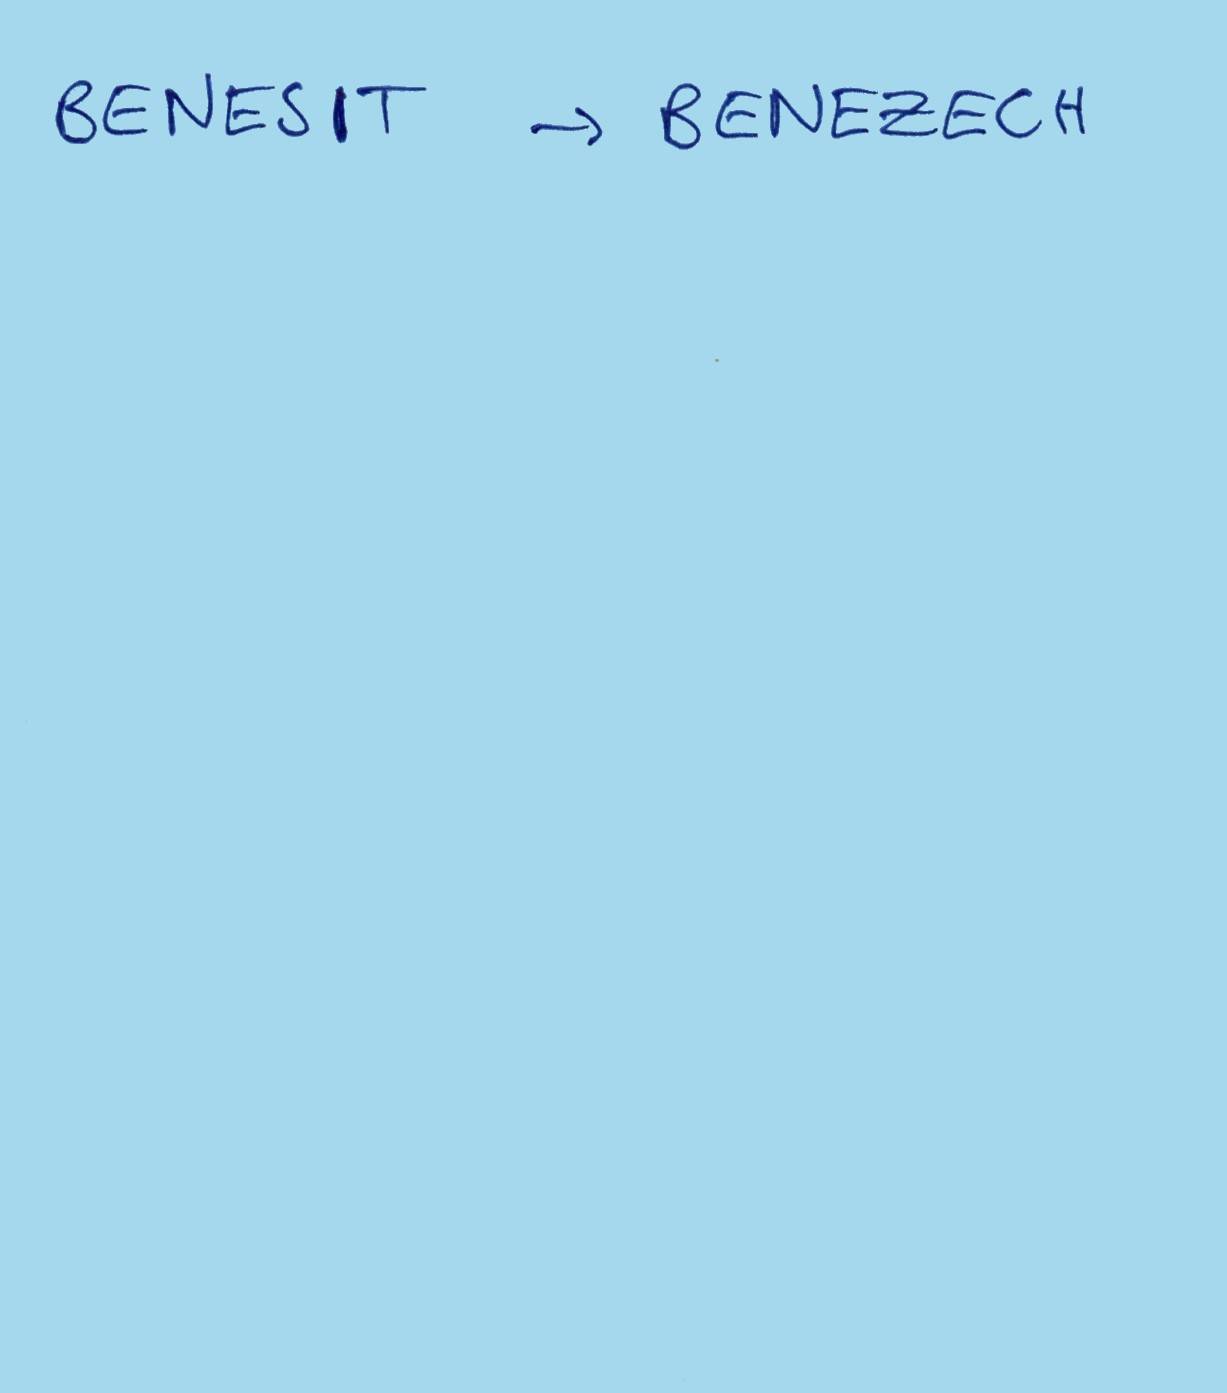 BENESIT → BENEZECH